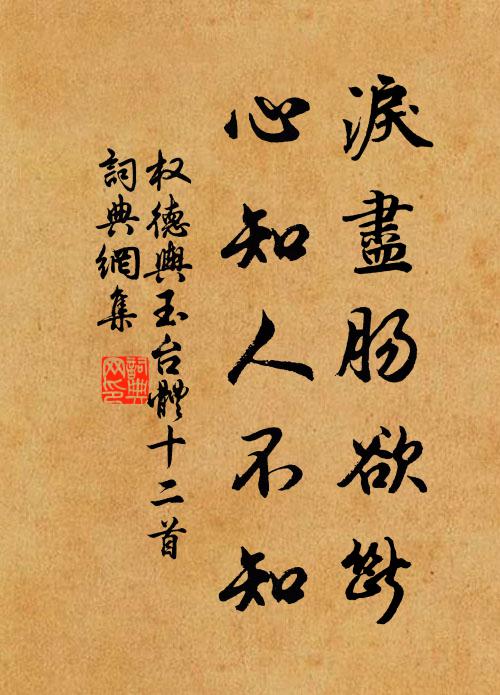 淚盡腸欲斷
心知人不知
权德輿玉台體十二首
詞典網集
詞典
网印